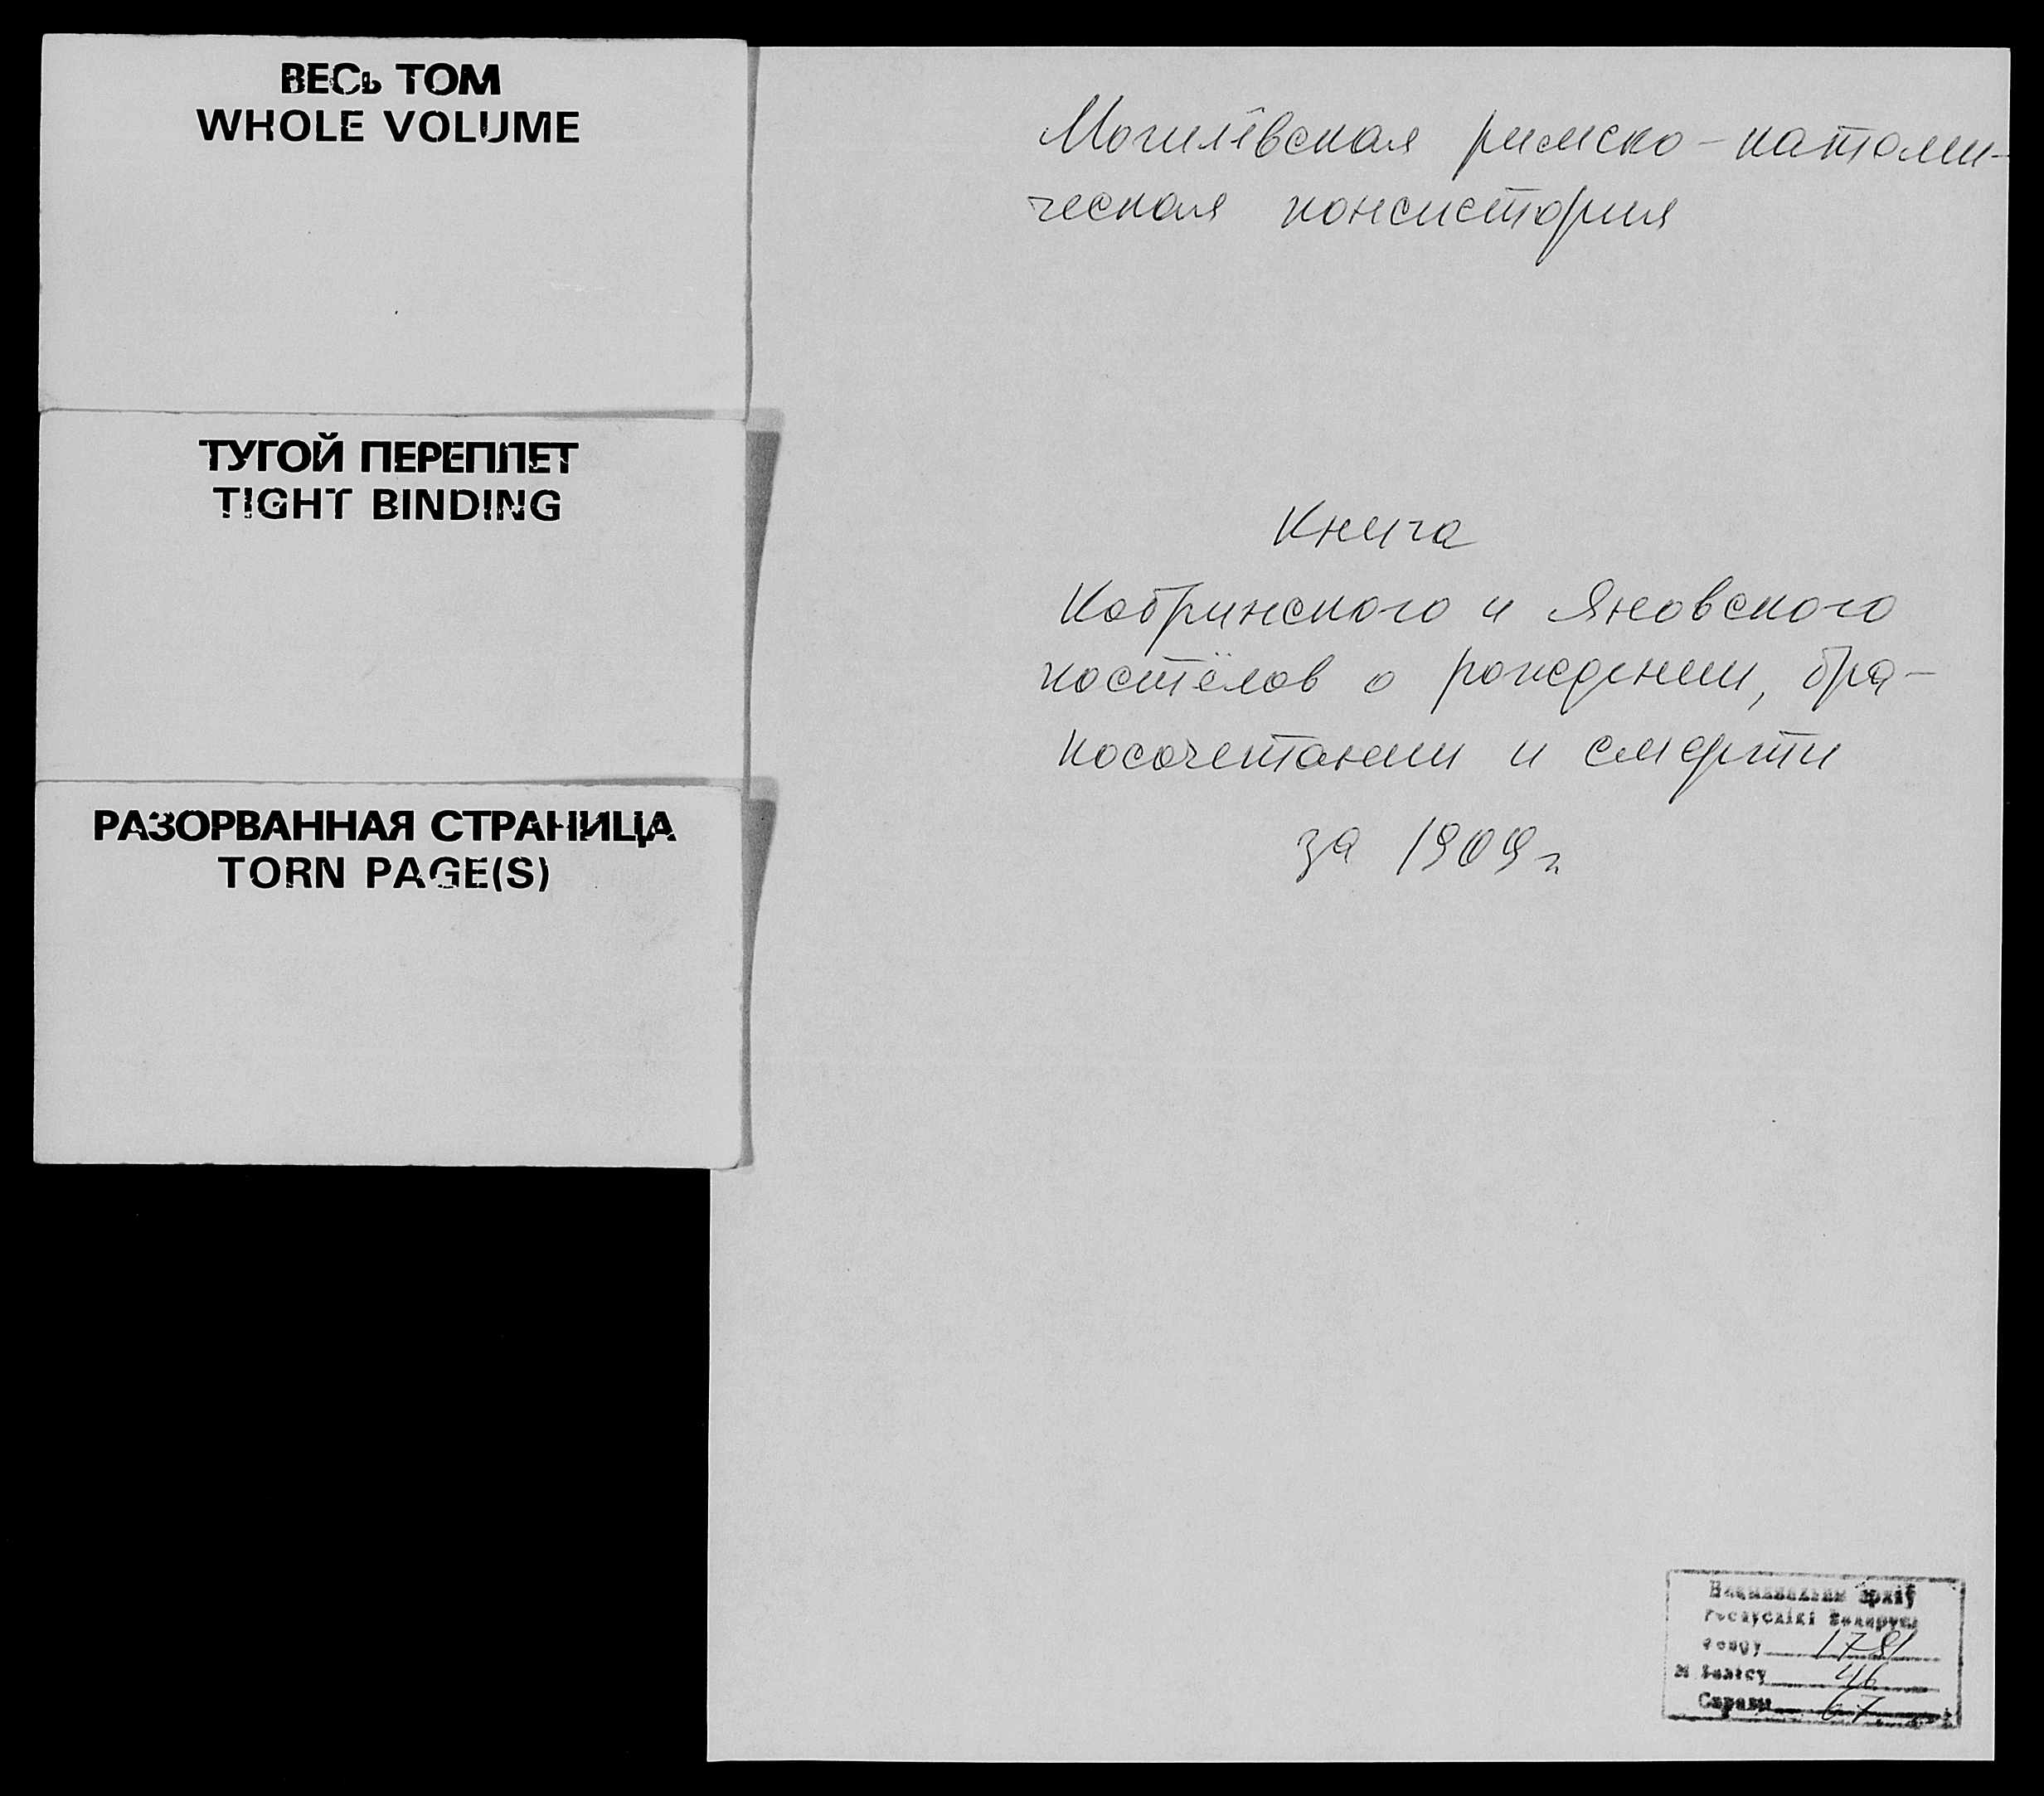 ВЕСЬ ТОМ
WHOLE VOLUME
ТУГОЙ ПЕРЕПЛЕТ
TIGHT BINDING
РАЗОРВАННАЯ СТРАНИЦА
TORN PAGE(S)
Могилёвская римско-католи-
ческая консистория
Книга
Кобринского и Яновского
костёлов о рождении, бра-
косочетании и смерти
за 1909 г.
Нацыянальны архіў
Рэспублікі Беларусь
Фонду 1781
№ Вопісу 46
Справы 67